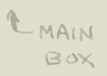 MAIN
BOX